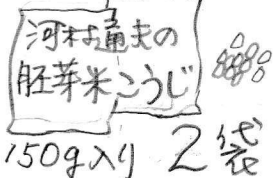 河村通夫の
胚芽米こうじ
150g入り 2袋